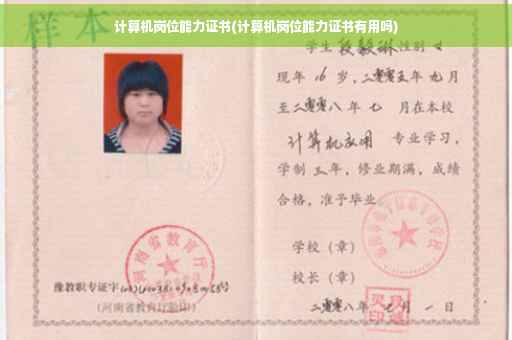 计算机岗位能力证书(计算机岗位能力证书有用吗)
样本
学生段毅琳性别女
现年16岁，二零零五年九月
至二零零八年七月在本校
计算机应用 专业学习，
学制三年，修业期满，成绩
合格，准予毕业。
学校（章）
校长（章）
二零零八年七月一日
河南省教育厅
豫教职专证字
（河南省教育厅验印）